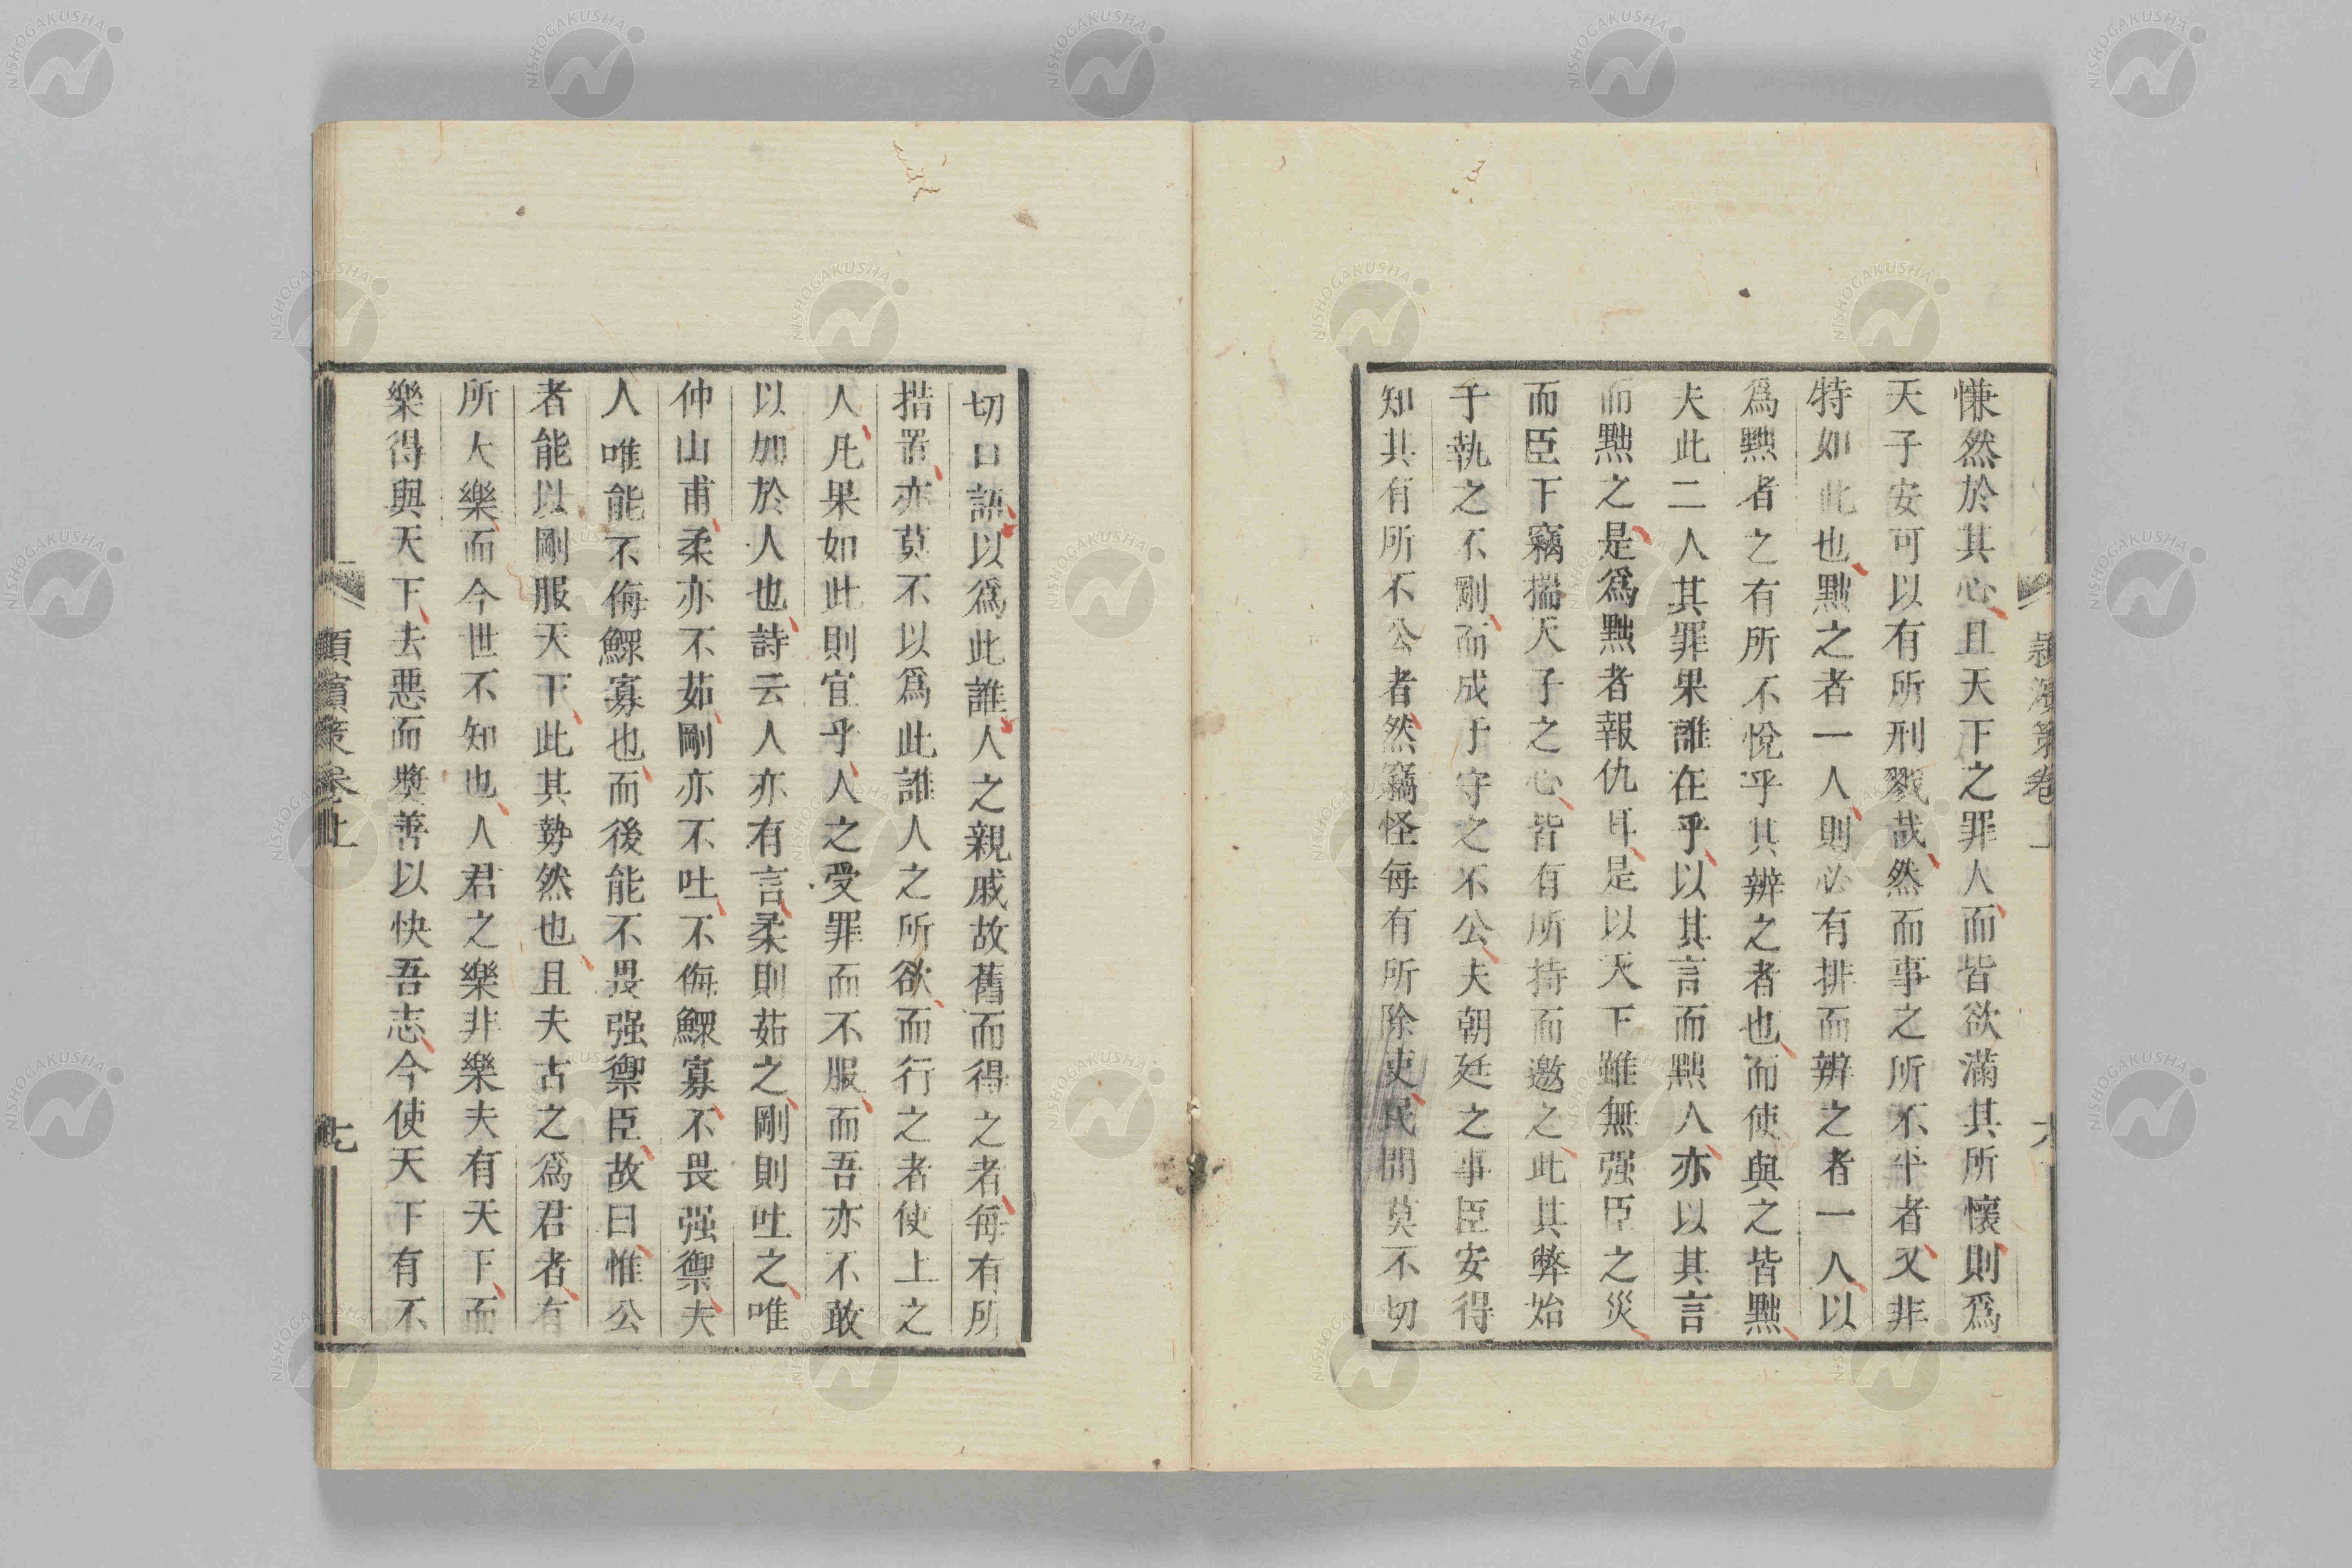 潁濱策卷上
六
慊然於其心且天下之罪人而皆欲滿其所懷則爲
天子安可以有所刑戮哉然而事之所不平者又非
特如此也黜之者一人則必有排而辨之者一人以
爲黜者之有所不悅乎其辨之者也而使與之皆黜
夫此二人其罪果誰在乎以其言而黜人亦以其言
而黜之是爲黜者報仇耳是以天下雖無强臣之災
而臣下竊揣天子之心皆有所持而邀之此其弊始
于執之不剛而成于守之不公夫朝廷之事臣安得
知其有所不公者然竊怪每有所除吏民間莫不切
切口語以爲此誰人之親戚故舊而得之者每有所
措置亦莫不以爲此誰人之所欲而行之者使上之
人凡果如此則宜乎人之受罪而不服而吾亦不敢
以加於人也詩云人亦有言柔則茹之剛則吐之唯
仲山甫柔亦不茹剛亦不吐不侮鰥寡不畏强禦夫
人唯能不侮鰥寡也而後能不畏强禦臣故曰惟公
者能以剛服天下此其勢然也且夫古之爲君者有
所大樂而今世不知也人君之樂非樂夫有天下而
樂得與天下去惡而奬善以快吾志今使天下有不
潁濱策卷上
七
NISHOGAKUSHA